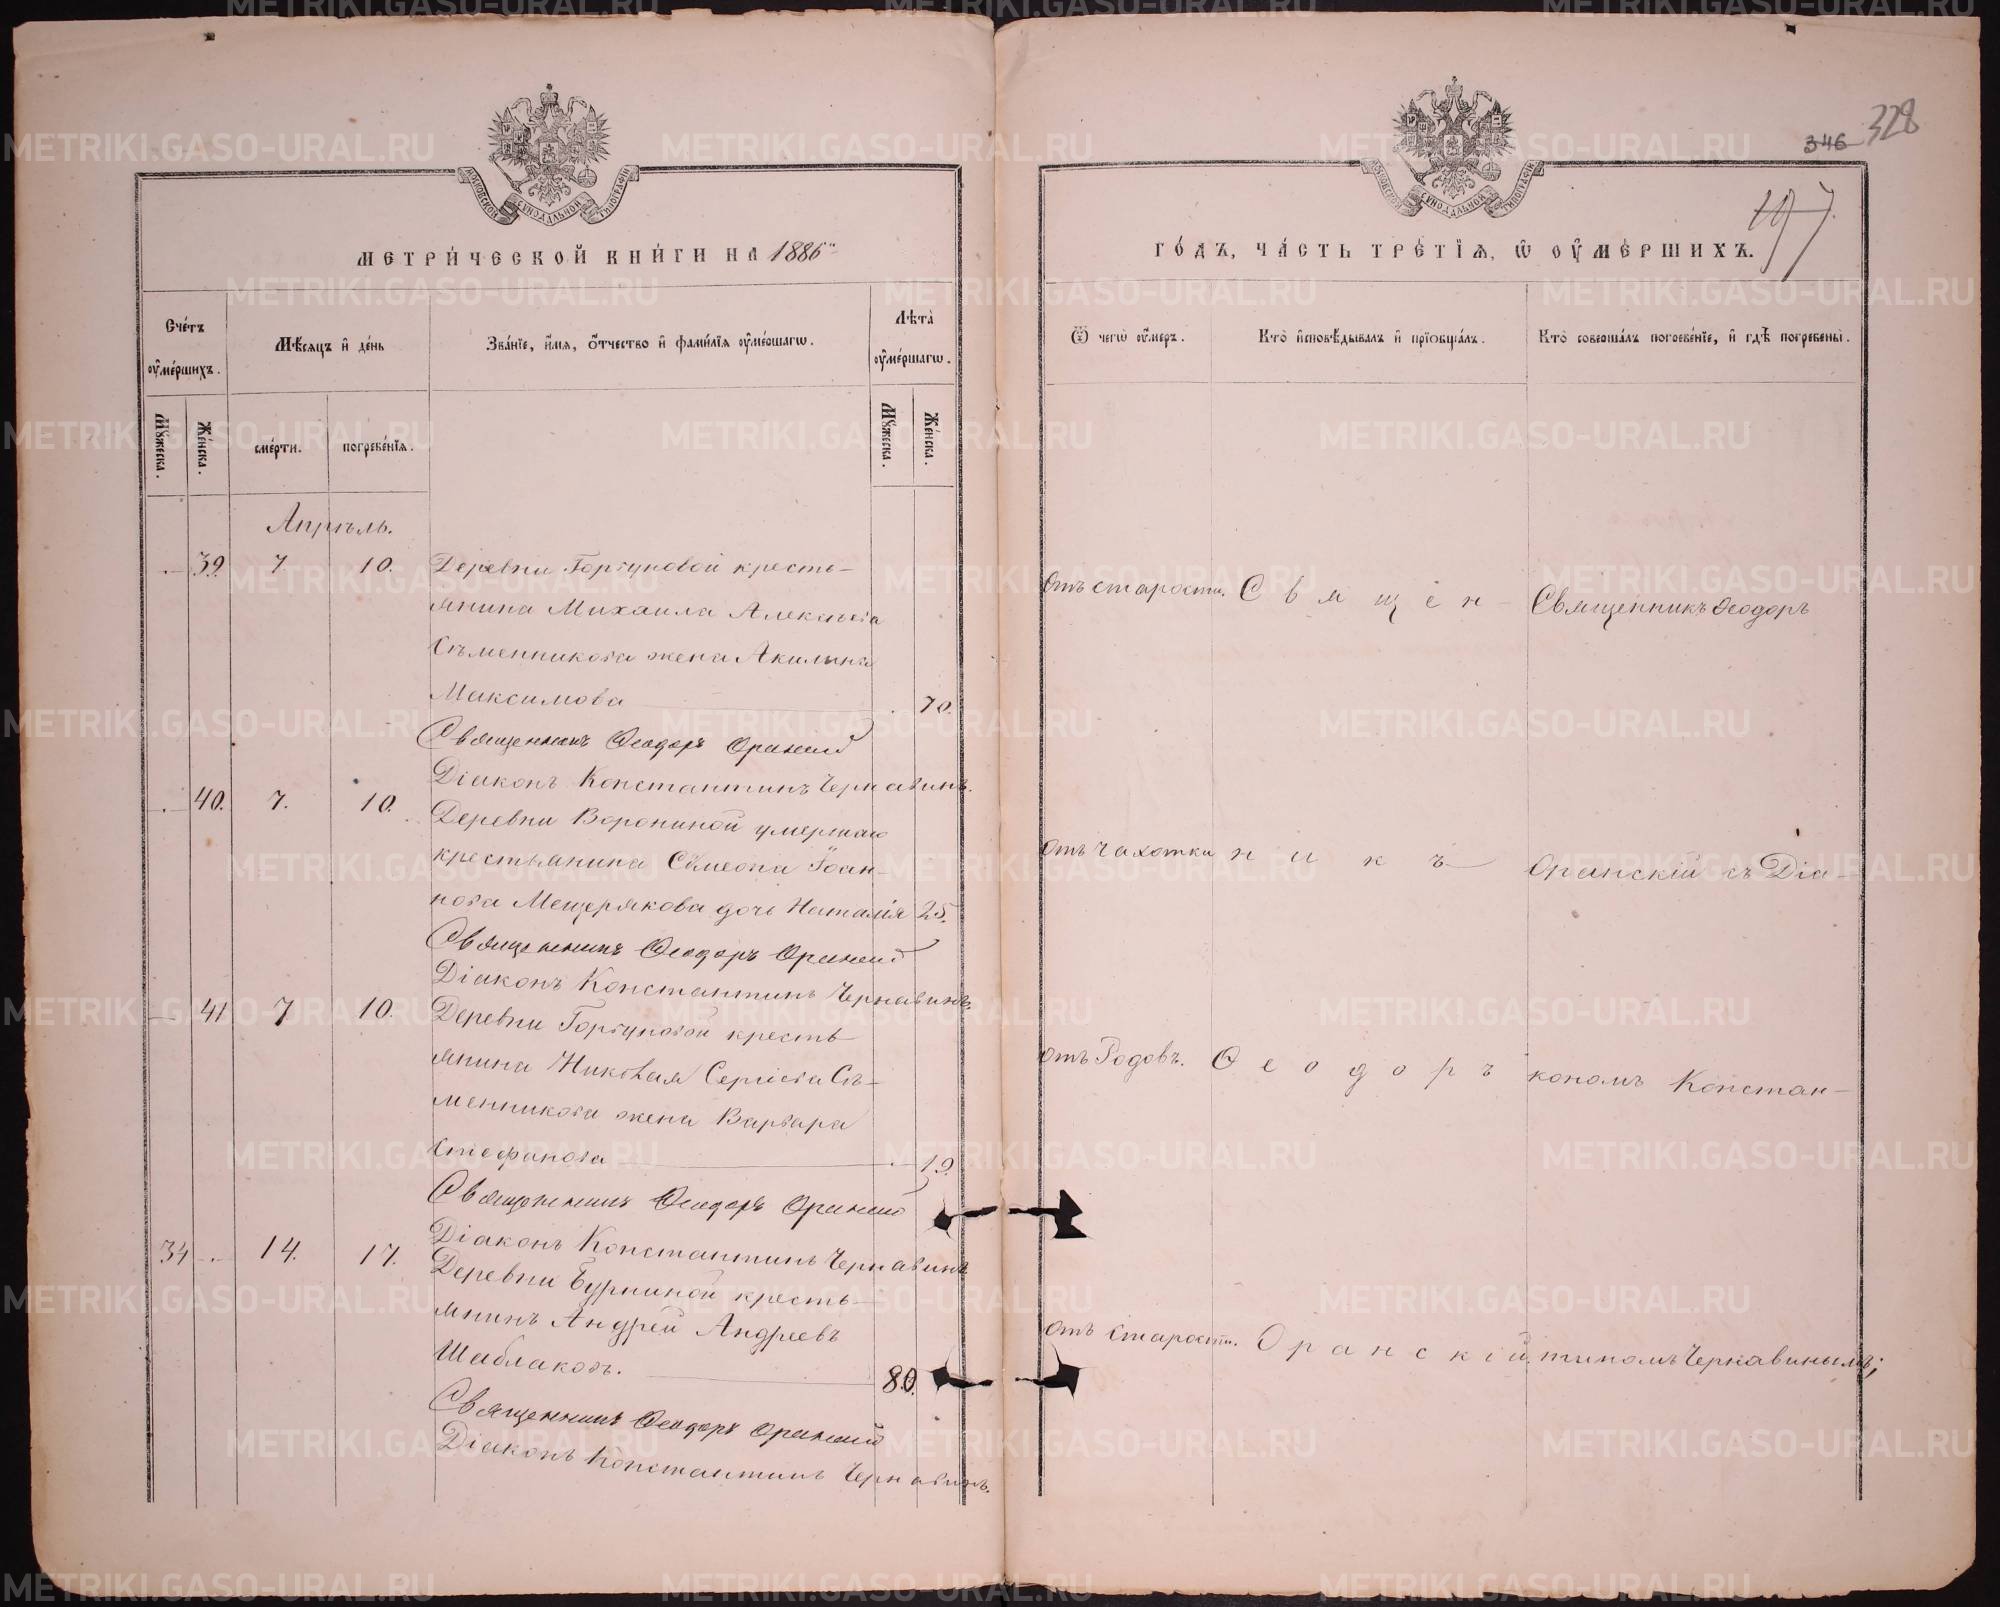 МОСКОВСКОЙ СѴНОДАЛЬНОЙ ТИПОГРАФІИ
МЕТРИ́ЧЕСКОЙ КНИ́ГИ НА 1886й
Сче́тъ ᲂу҆ме́ршихъ.
Мѣ́сяцъ и҆ де́нь
Зва́нїе, и҆́мя, ѻ҆́тчество и҆ фами́лїя ᲂу҆ме́ршагѡ.
Лѣ́та ᲂу҆ме́ршагѡ.
Мꙋ́жеска.
Же́нска.
сме́рти.
погребе́нїя.
Мꙋ́жеска.
Же́нска.
Апрѣль.
39. 7 10. Деревни Горгуновой кресть-
янина Михаила Алексѣева
Сѣменникова жена Акилина
Максимова 70.
Священникъ Ѳеодоръ Оранскій
Діаконъ Константинъ Чернавинъ.
40. 7. 10. Деревни Ворониной умершаго
крестьянина Сѵмеона Іоан-
нова Мещерякова дочь Наталія 25.
Священникъ Ѳеодоръ Оранскій
Діаконъ Константинъ Чернавинъ.
41 7 10. Деревни Горгуновой кресть-
янина Николая Сергіева Сѣ-
менникова жена Варвара
Стефанова 19.
Священникъ Ѳеодоръ Оранскій
Діаконъ Константинъ Чернавинъ
34 14. 17. Деревни Бурниной кресть-
янинъ Андрей Андреевъ
Шаблаковъ. 80.
Священникъ Ѳеодоръ Оранскій
Діаконъ Константинъ Чернавинъ.
346 328
197.
МОСКОВСКОЙ СѴНОДАЛЬНОЙ ТИПОГРАФІИ
ГО́ДЪ, ЧА́СТЬ ТРЕ́ТЇЯ, Ѡ҆ ОУ҆МЕ́РШИХЪ.
Ѿ чегѡ̀ ᲂу҆́меръ.
Кто̀ и҆сповѣ́дывалъ и҆ прїѻбща́лъ.
Кто̀ соверша́лъ погребе́нїе, и҆ гдѣ̀ погребены̀.
отъ старости. Священ- Священникъ Ѳеодоръ
отъ чахотки никъ Оранскій съ Діа-
отъ Родовъ. Ѳеодоръ кономъ Констан-
отъ старости. Оранскій. тиномъ Чернавинымъ;
METRIKI.GASO-URAL.RU